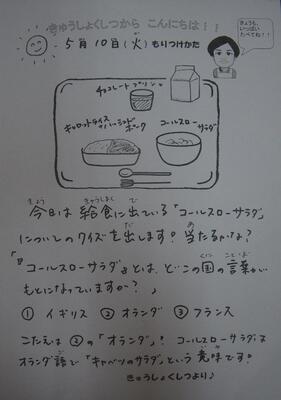 きゅうしょくしつから こんにちは!!
5月10日(火)もりつけかた
きょうも、
いっぱい
たべてね!!
チョコレートプリン
キャロットライス
ハヤシ
ポーク
コールスローサラダ
今日は給食に出ている「コールスローサラダ」
についてのクイズを出します!当たるかな?
「『コールスローサラダ』とは、どこの国の言葉が
もとになっていますか?」
① イギリス ② オランダ ③ フランス
こたえは②の「オランダ」!コールスローサラダは
オランダ語で「キャベツのサラダ」という意味です!
きゅうしょくしつより♪